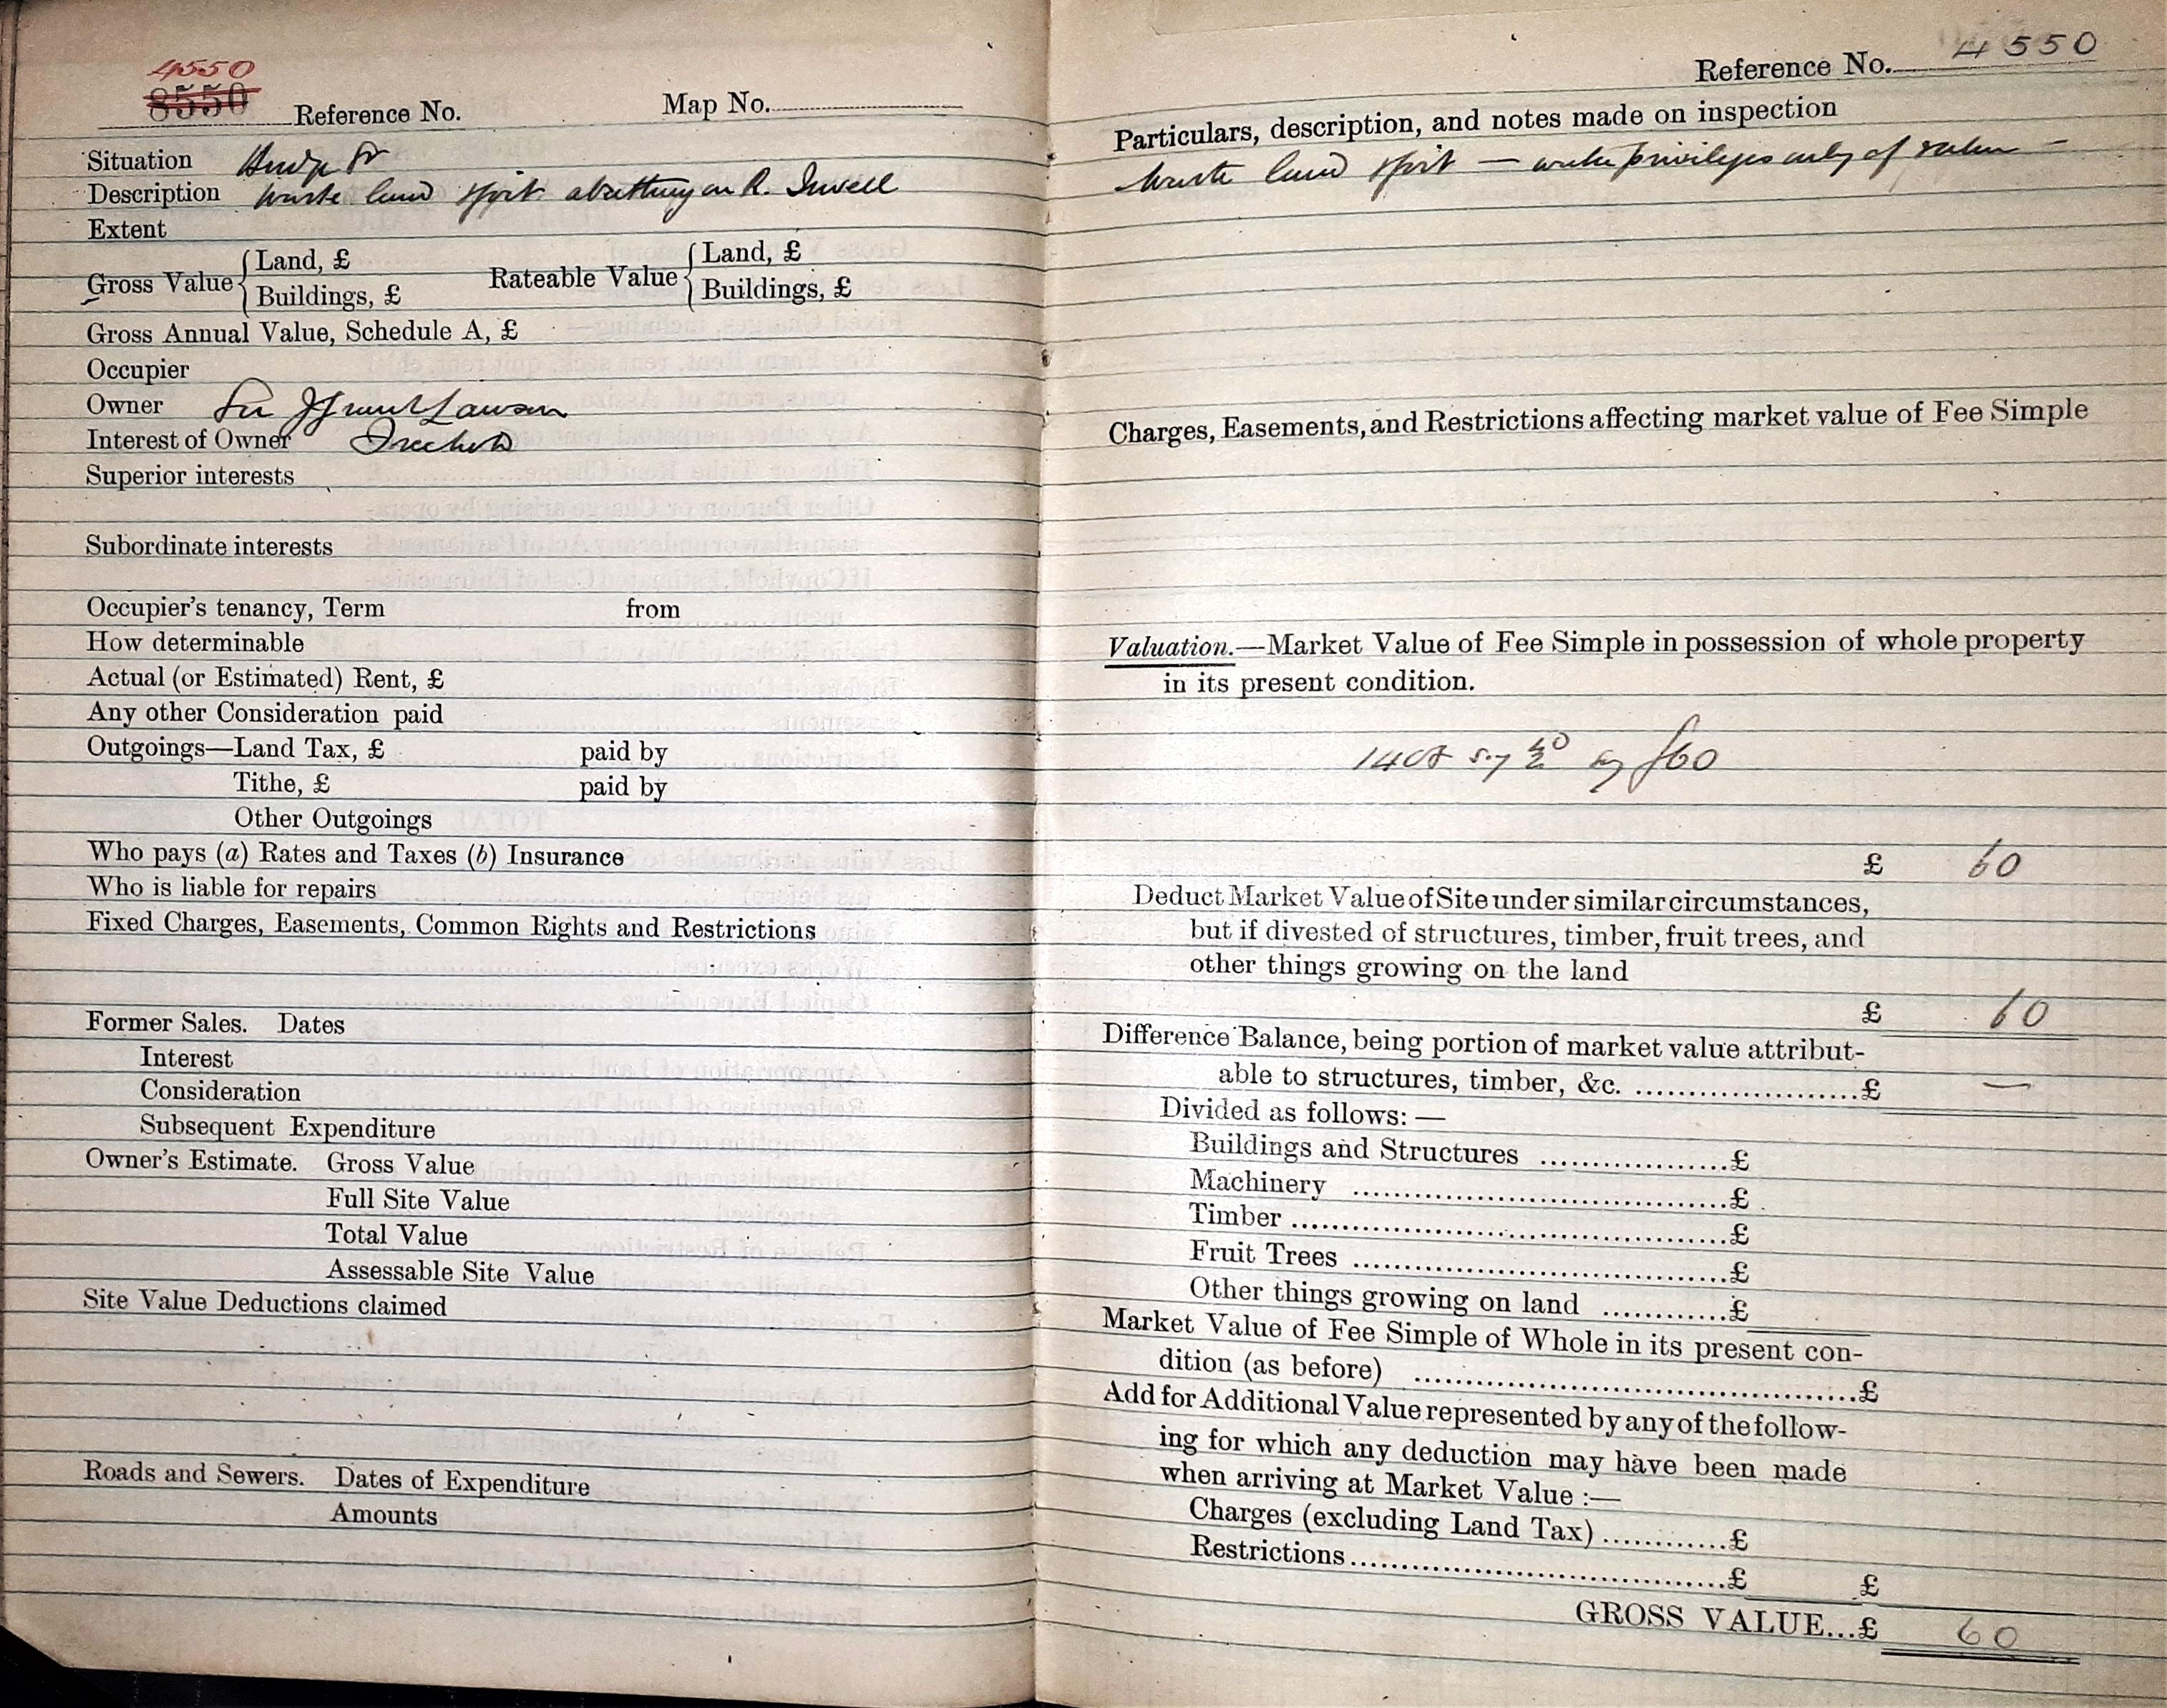 4550
8550 Reference No. Map No.
Situation
Description waste land spit abutting on R. Irwell
Extent
Gross Value { Land, £ Rateable Value { Land, £
Buildings, £ Buildings, £
Gross Annual Value, Schedule A, £
Occupier
Owner Sir J Grant Lawson
Interest of Owner Freehold
Superior interests
Subordinate interests
Occupier's tenancy, Term from
How determinable
Actual (or Estimated) Rent, £
Any other Consideration paid
Outgoings—Land Tax, £ paid by
Tithe, £ paid by
Other Outgoings
Who pays (a) Rates and Taxes (b) Insurance
Who is liable for repairs
Fixed Charges, Easements, Common Rights and Restrictions
Former Sales. Dates
Interest
Consideration
Subsequent Expenditure
Owner's Estimate. Gross Value
Full Site Value
Total Value
Assessable Site Value
Site Value Deductions claimed
Roads and Sewers. Dates of Expenditure
Amounts
Reference No. 4550
Particulars, description, and notes made on inspection
Waste land spit — water privileges only of value —
Charges, Easements, and Restrictions affecting market value of Fee Simple
Valuation.—Market Value of Fee Simple in possession of whole property
in its present condition.
1408 s.y say £60
£ 60
Deduct Market Value of Site under similar circumstances,
but if divested of structures, timber, fruit trees, and
other things growing on the land
£ 60
Difference Balance, being portion of market value attribut-
able to structures, timber, &c. ......................£ —
Divided as follows:—
Buildings and Structures ...................£
Machinery ......................................£
Timber ............................................£
Fruit Trees ......................................£
Other things growing on land ............£
Market Value of Fee Simple of Whole in its present con-
dition (as before) .............................................£
Add for Additional Value represented by any of the follow-
ing for which any deduction may have been made
when arriving at Market Value :—
Charges (excluding Land Tax) ............£
Restrictions ......................................£ £
GROSS VALUE...£ 60